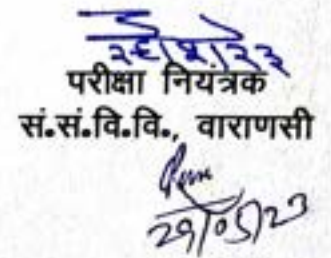 परीक्षा नियंत्रक
सं.सं.वि.वि., वाराणसी
29/05/23